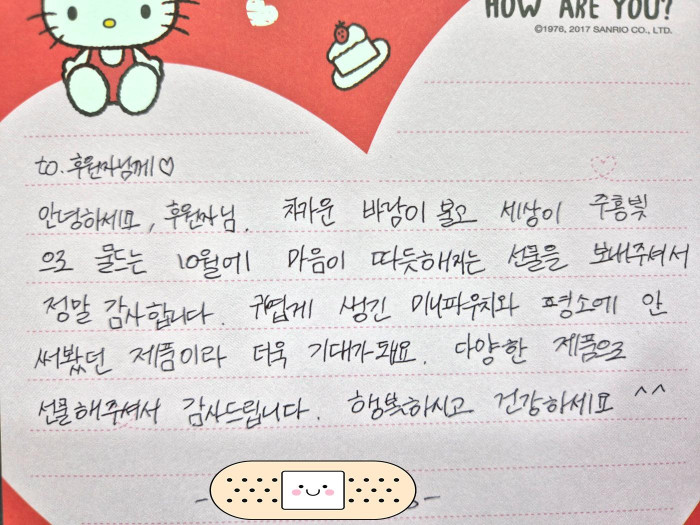 HOW ARE YOU?
©1976, 2017 SANRIO CO., LTD.
to. 후원자님께♡
안녕하세요, 후원자님. 차가운 바람이 불고 세상이 주홍빛
으로 물드는 10월에 마음이 따듯해지는 선물을 보내주셔서
정말 감사합니다. 귀엽게 생긴 미니파우치와 평소에 안
써봤던 제품이라 더욱 기대가 돼요. 다양한 제품으로
선물해주셔서 감사드립니다. 행복하시고 건강하세요 ^^